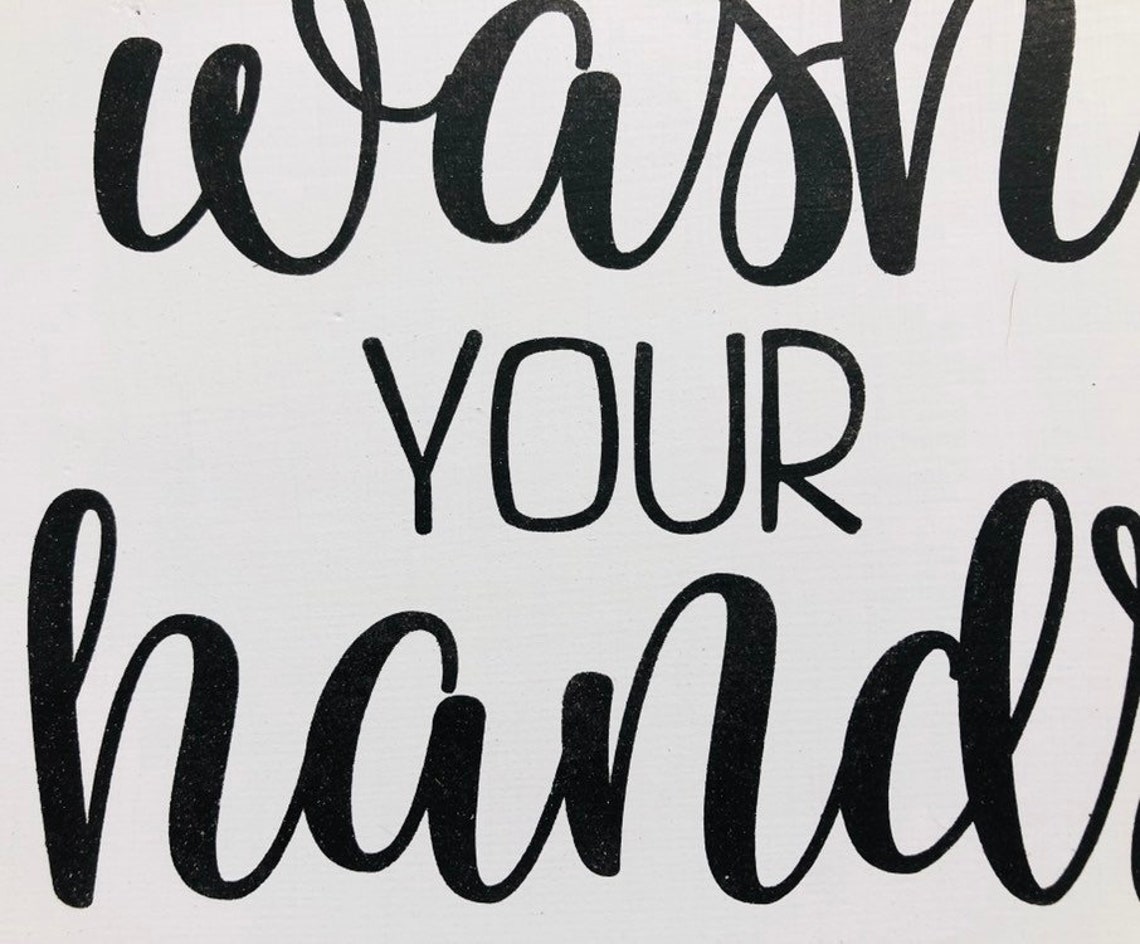 wash
YOUR
hands